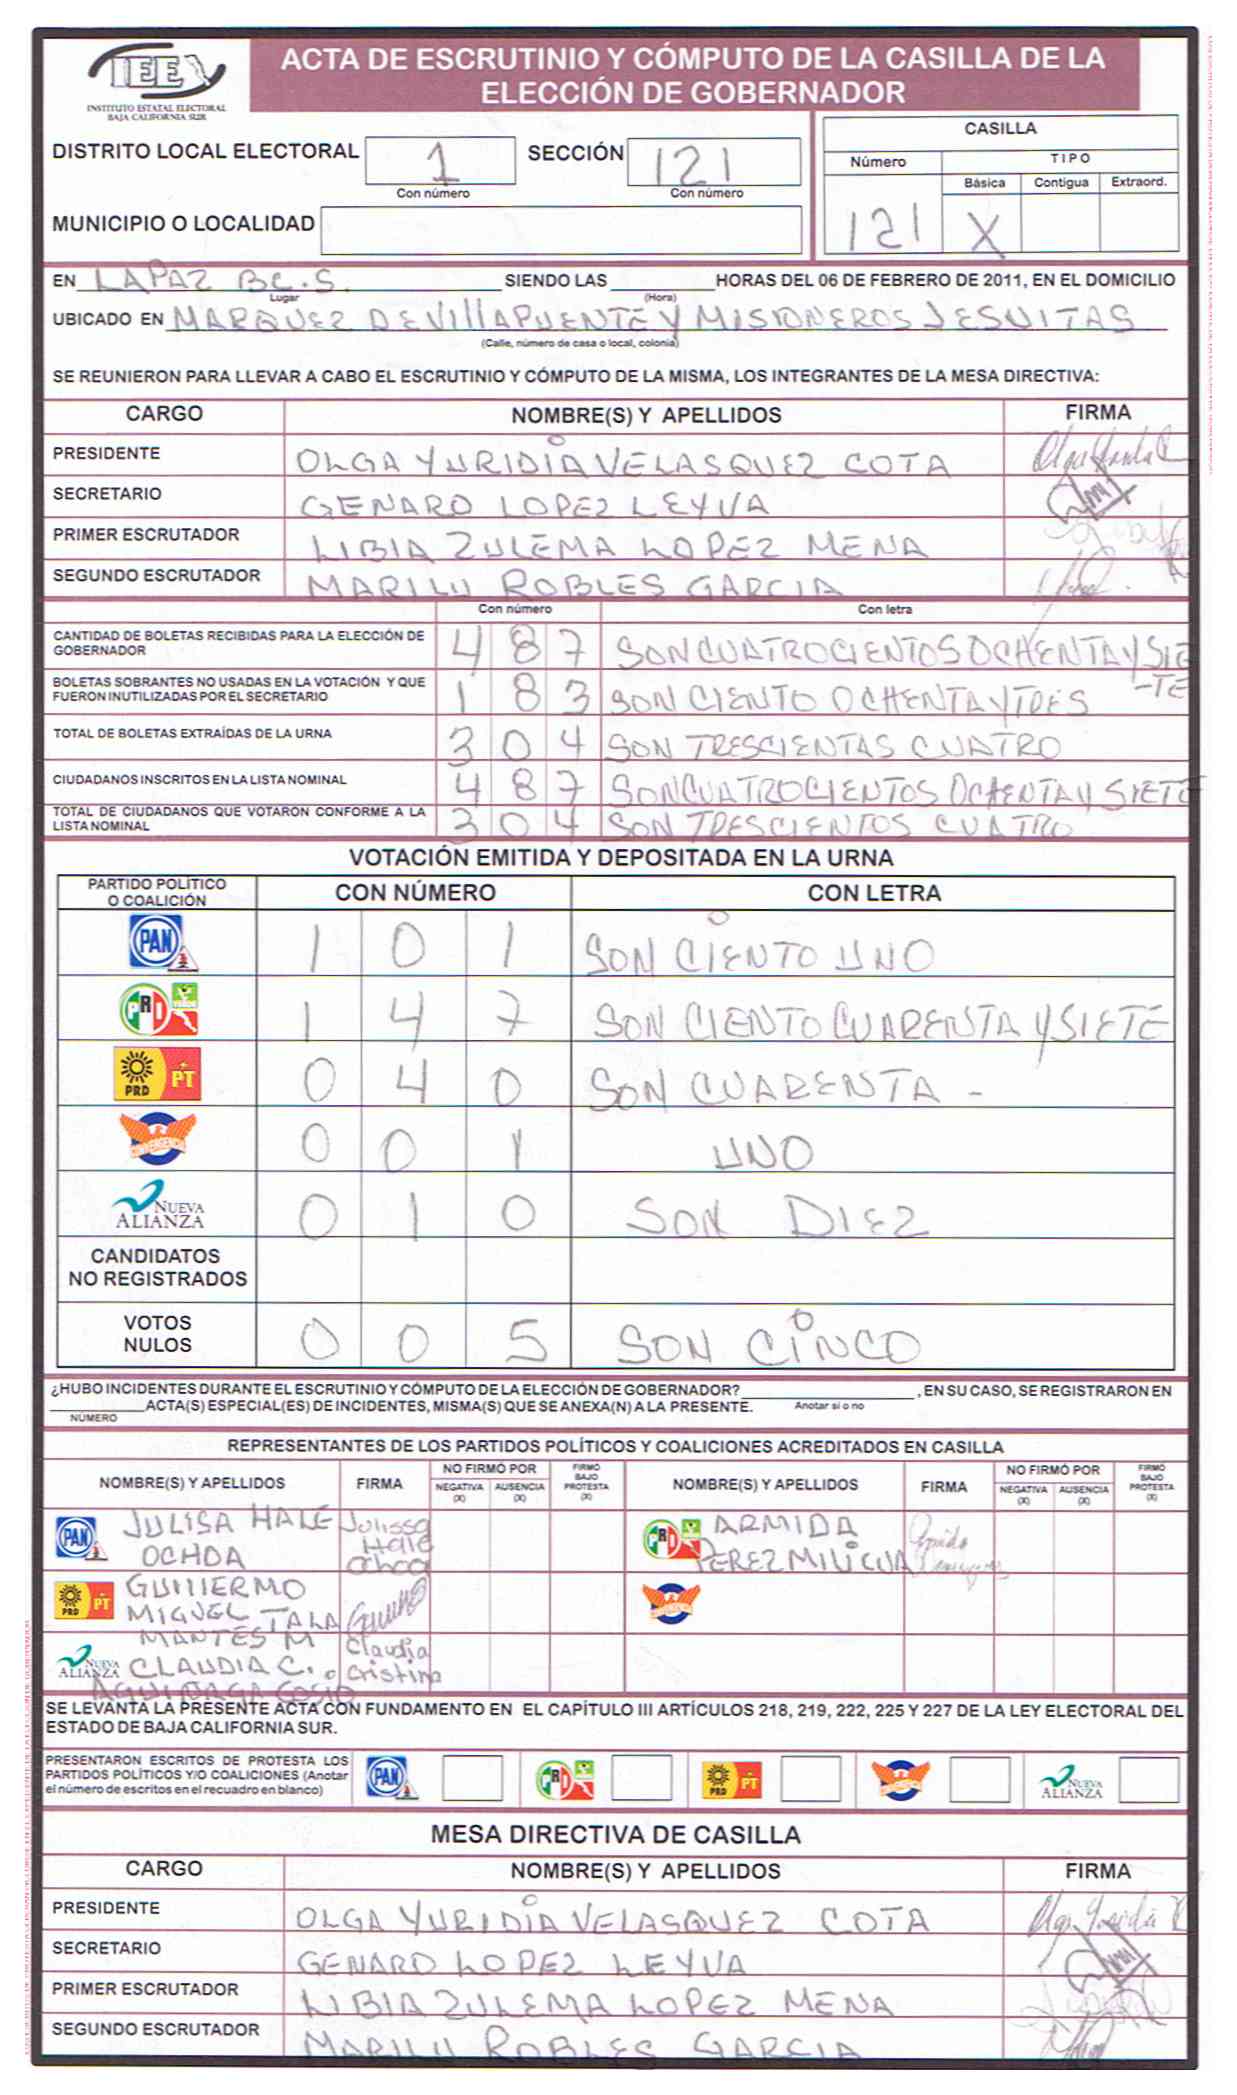 IEE
INSTITUTO ESTATAL ELECTORAL
BAJA CALIFORNIA SUR
ACTA DE ESCRUTINIO Y CÓMPUTO DE LA CASILLA DE LA
ELECCIÓN DE GOBERNADOR
DISTRITO LOCAL ELECTORAL 1 SECCIÓN 121
Con número Con número
CASILLA
Número TIPO
Básica Contigua Extraord.
121 X
MUNICIPIO O LOCALIDAD
EN LA PAZ BC.S. SIENDO LAS HORAS DEL 06 DE FEBRERO DE 2011, EN EL DOMICILIO
Lugar (Hora)
UBICADO EN MARQUEZ DE VillAPUENTE Y MISIONEROS JESUITAS
(Calle, número de casa o local, colonia)
SE REUNIERON PARA LLEVAR A CABO EL ESCRUTINIO Y CÓMPUTO DE LA MISMA, LOS INTEGRANTES DE LA MESA DIRECTIVA:
CARGO NOMBRE(S) Y APELLIDOS FIRMA
PRESIDENTE OLGA YURIDIA VELASQUEZ COTA
SECRETARIO GENARO LOPEZ LEYVA
PRIMER ESCRUTADOR LIBIA ZULEMA LOPEZ MENA
SEGUNDO ESCRUTADOR MARILU ROBLES GARCIA
Con número Con letra
CANTIDAD DE BOLETAS RECIBIDAS PARA LA ELECCIÓN DE
GOBERNADOR 4 8 7 SON CUATROCIENTOS OCHENTA Y SIE
-TE
BOLETAS SOBRANTES NO USADAS EN LA VOTACIÓN Y QUE
FUERON INUTILIZADAS POR EL SECRETARIO 1 8 3 SON CIENTO OCHENTA Y TRES
TOTAL DE BOLETAS EXTRAÍDAS DE LA URNA 3 0 4 SON TRESCIENTAS CUATRO
CIUDADANOS INSCRITOS EN LA LISTA NOMINAL 4 8 7 SON CUATROCIENTOS OCHENTA Y SIETE
TOTAL DE CIUDADANOS QUE VOTARON CONFORME A LA
LISTA NOMINAL 3 0 4 SON TRESCIENTOS CUATRO
VOTACIÓN EMITIDA Y DEPOSITADA EN LA URNA
PARTIDO POLÍTICO
O COALICIÓN CON NÚMERO CON LETRA
PAN 1 0 1 SON CIENTO UNO
PRI VERDE 1 4 7 SON CIENTO CUARENTA Y SIETE
PRD PT 0 4 0 SON CUARENTA -
CONVERGENCIA 0 0 1 UNO
NUEVA ALIANZA 0 1 0 SON DIEZ
CANDIDATOS
NO REGISTRADOS
VOTOS
NULOS 0 0 5 SON CINCO
¿HUBO INCIDENTES DURANTE EL ESCRUTINIO Y CÓMPUTO DE LA ELECCIÓN DE GOBERNADOR? , EN SU CASO, SE REGISTRARON EN
ACTA(S) ESPECIAL(ES) DE INCIDENTES, MISMA(S) QUE SE ANEXA(N) A LA PRESENTE. Anotar si o no
NÚMERO
REPRESENTANTES DE LOS PARTIDOS POLÍTICOS Y COALICIONES ACREDITADOS EN CASILLA
NOMBRE(S) Y APELLIDOS FIRMA NO FIRMÓ POR NEGATIVA (X) AUSENCIA (X) FIRMÓ BAJO PROTESTA (X) NOMBRE(S) Y APELLIDOS FIRMA NO FIRMÓ POR NEGATIVA (X) AUSENCIA (X) FIRMÓ BAJO PROTESTA (X)
PAN JULISA HALE OCHOA Julissa Hale Ochoa PRI ARMIDA PEREZ
PRD PT GUIllERMO MIGUEL TALA MANTES M
NUEVA ALIANZA CLAUDIA C. Claudia Cristina
SE LEVANTA LA PRESENTE ACTA CON FUNDAMENTO EN EL CAPÍTULO III ARTÍCULOS 218, 219, 222, 225 Y 227 DE LA LEY ELECTORAL DEL
ESTADO DE BAJA CALIFORNIA SUR.
PRESENTARON ESCRITOS DE PROTESTA LOS
PARTIDOS POLÍTICOS Y/O COALICIONES (Anotar
el número de escritos en el recuadro en blanco) PAN PRI PRD PT NUEVA ALIANZA
MESA DIRECTIVA DE CASILLA
CARGO NOMBRE(S) Y APELLIDOS FIRMA
PRESIDENTE OLGA YURIDIA VELASQUEZ COTA
SECRETARIO GENARO LOPEZ LEYVA
PRIMER ESCRUTADOR LIBIA ZULEMA LOPEZ MENA
SEGUNDO ESCRUTADOR MARILU ROBLES GARCIA